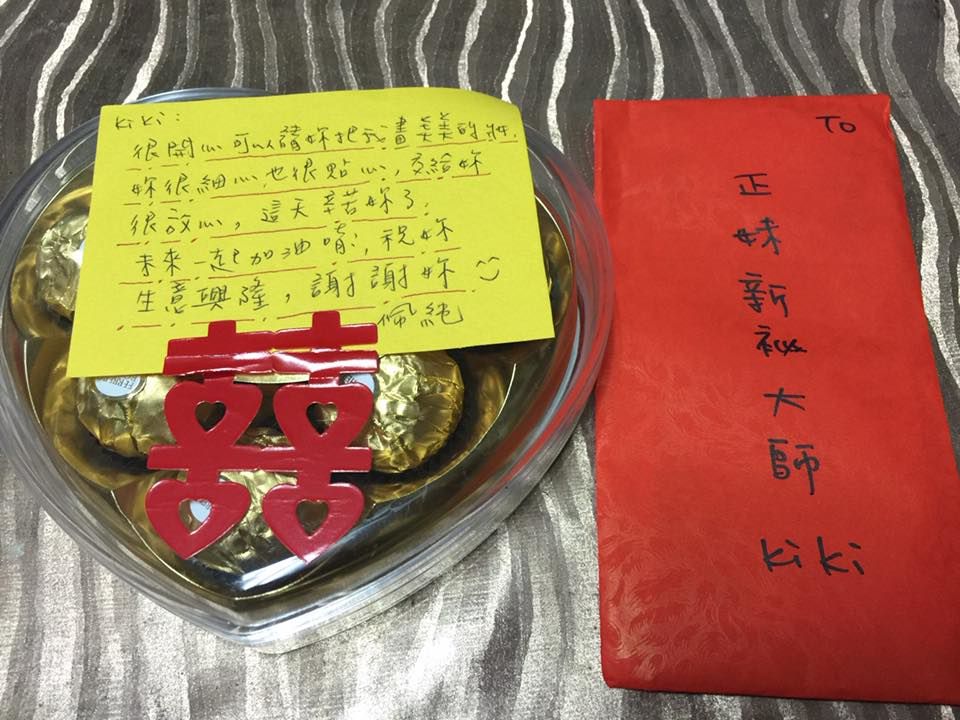 Kiki:
很開心可以請妳把我畫美美的妝,
妳很細心也很貼心, 交給妳
很放心, 這天辛苦妳了,
未來一起加油唷, 祝妳
生意興隆, 謝謝妳
佩純
囍
TO
正妹新祕大師 Kiki